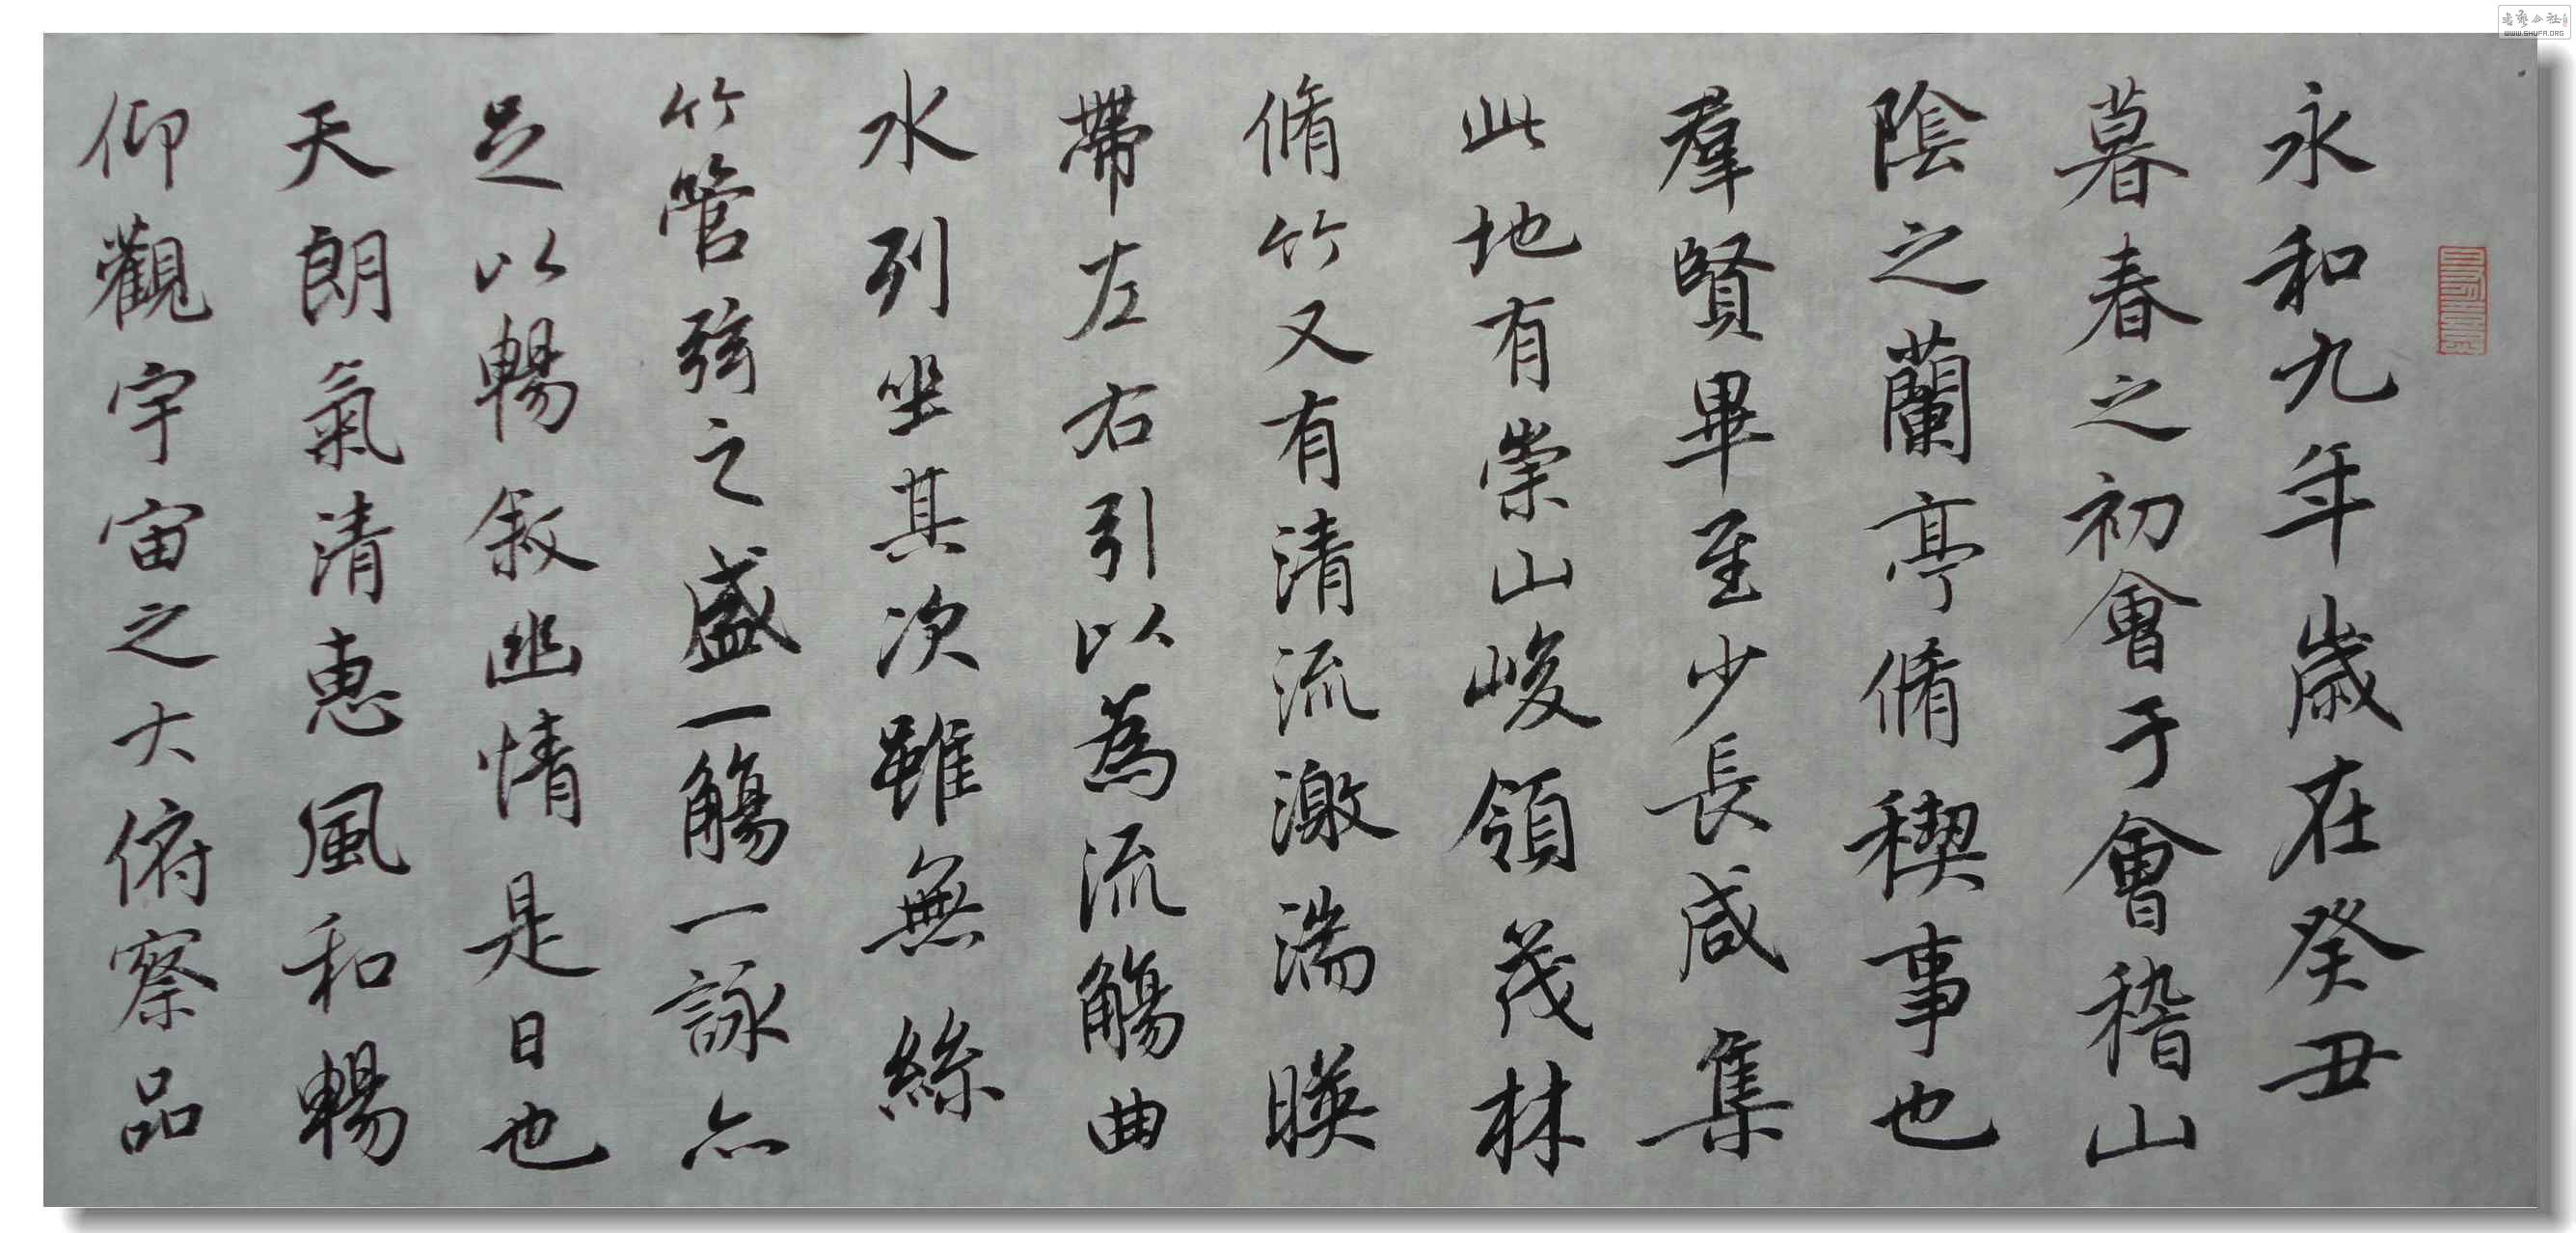 永和九年歲在癸丑
暮春之初會于會稽山
陰之蘭亭脩稧事也
羣賢畢至少長咸集
此地有崇山峻領茂林
脩竹又有清流激湍暎
帶左右引以為流觴曲
水列坐其次雖無絲
竹管弦之盛一觴一詠亦
足以暢敘幽情是日也
天朗氣清惠風和暢
仰觀宇宙之大俯察品
WWW.SHUFA.ORG